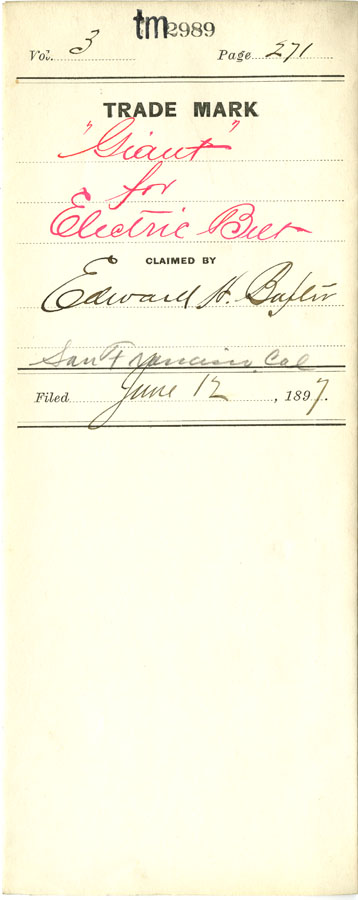 tm2989
Vol. 3 Page 271
TRADE MARK
"Giant"
for
Electric Belt
CLAIMED BY
Edward H.
San Francisco, Cal
Filed June 12, 1897.